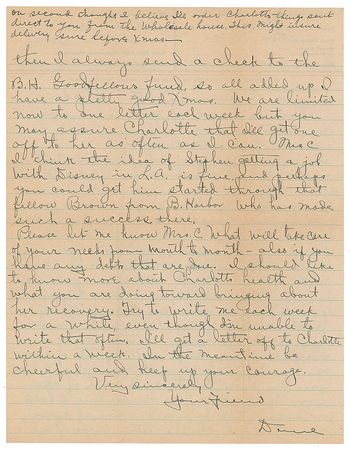 on second thought I believe I'll order Charlotte things sent
direct to you from the wholesale house. This might insure
delivery sure before Xmas
then I always send a check to the
B.H. Goodfellows fund, so all added up I
have a pretty good Xmas. We are limited
now to one letter each week but you
may assure Charlotte that I'll get one
off to her as often as I can. Mrs C
I think the idea of Stephen getting a job
with Disney in L.A. is fine and perhaps
you could get him started through that
fellow Brown from B. Harbor who has made
such a success there.
Please let me know Mrs. C. What will take care
of your needs from month to month - also if you
have any debts that are due. I should like
to know more about Charlotts health and
what you are doing toward bringing about
her recovery. Try to write me each week
for a while, even though I'm unable to
write that often. I'll get a letter off to Charlotte
within a week. In the meantime be
cheerful and keep up your courage.
Very sincerely
Your Friend